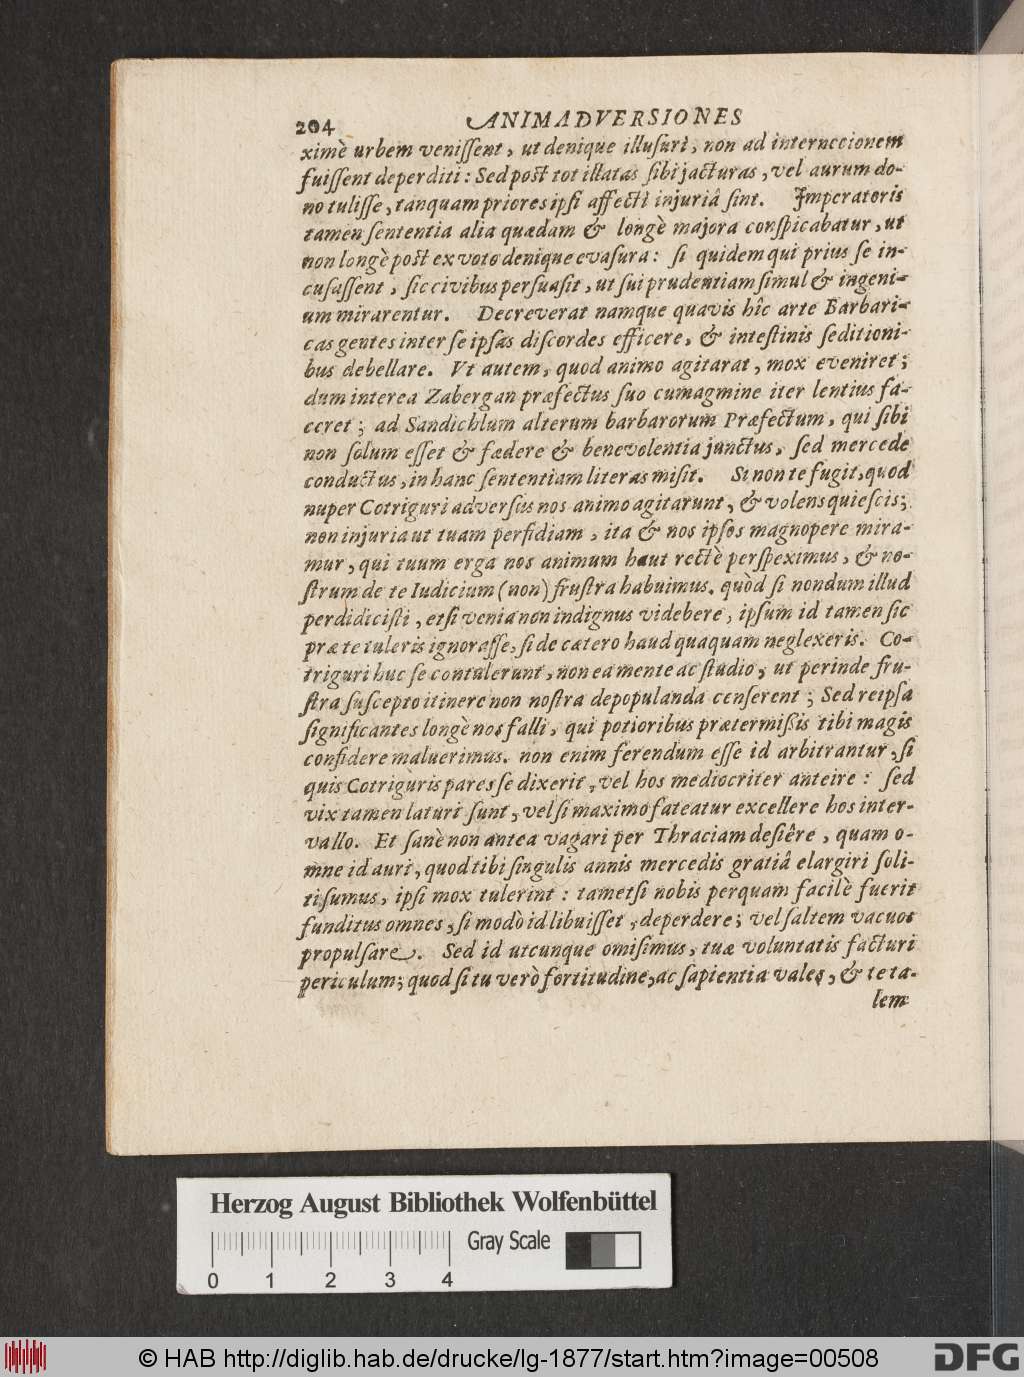 204 ANIMADVERSIONES
ximè urbem venissent, ut denique illusuri, non ad interneccionem
fuissent deperditi: Sed post tot illatas sibi jacturas, vel aurum do-
no tulisse, tanquam priores ipsi affecti injuriâ sint. Imperatoris
tamen sententia alia quædam & longè majora conspicabatur, ut
non longè post ex voto denique evasura: si quidem qui prius se in-
cusassent, sic civibus persuasit, ut sui prudentiam simul & ingeni-
um mirarentur. Decreverat namque quavis hîc arte Barbari-
cas gentes inter se ipsas discordes efficere, & intestinis seditioni-
bus debellare. Vt autem, quod animo agitarat, mox eveniret;
dum interea Zabergan præfectus suo cum agmine iter lentius fa-
ceret; ad Sandichlum alterum barbarorum Præfectum, qui sibi
non solum esset & fœdere & benevolentia junctus, sed mercede
conductus, in hanc sententiam literas misit. Si non te fugit, quod
nuper Cotriguri adversus nos animo agitarunt, & volens quiescis;
non injuria ut tuam perfidiam, ita & nos ipsos magnopere mira-
mur, qui tuum erga nos animum haut rectè perspeximus, & no-
strum de te Iudicium (non) frustra habuimus. quòd si nondum illud
perdidicisti, etsi venia non indignus videbere, ipsum id tamen sic
præ te tuleris ignorasse, si de cætero haud quaquam neglexeris. Co-
triguri huc se contulerunt, non ea mente ac studio, ut perinde fru-
stra suscepto itinere non nostra depopulanda censerent; Sed reipsa
significantes longè nos falli, qui potioribus prætermissis tibi magis
confidere maluerimus. non enim ferendum esse id arbitrantur, si
quis Cotriguris pares se dixerit, vel hos mediocriter anteire: sed
vix tamen laturi sunt, vel si maximo fateatur excellere hos inter-
vallo. Et sanè non antea vagari per Thraciam desiêre, quam o-
mne id auri, quod tibi singulis annis mercedis gratiâ elargiri soli-
ti sumus, ipsi mox tulerint: tametsi nobis perquam facilè fuerit
funditus omnes, si modò id libuisset, deperdere; vel saltem vacuos
propulsare. Sed id utcunque omisimus, tuæ voluntatis facturi
periculum; quod si tu verò fortitudine, ac sapientia vales, & te ta-
lem
Herzog August Bibliothek Wolfenbüttel
Gray Scale
0 1 2 3 4
© HAB http://diglib.hab.de/drucke/lg-1877/start.htm?image=00508
DFG